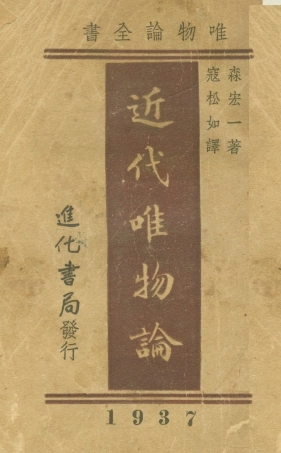 唯物論全書
森宏一著
寇松如譯
近代唯物論
進化書局發行
1937